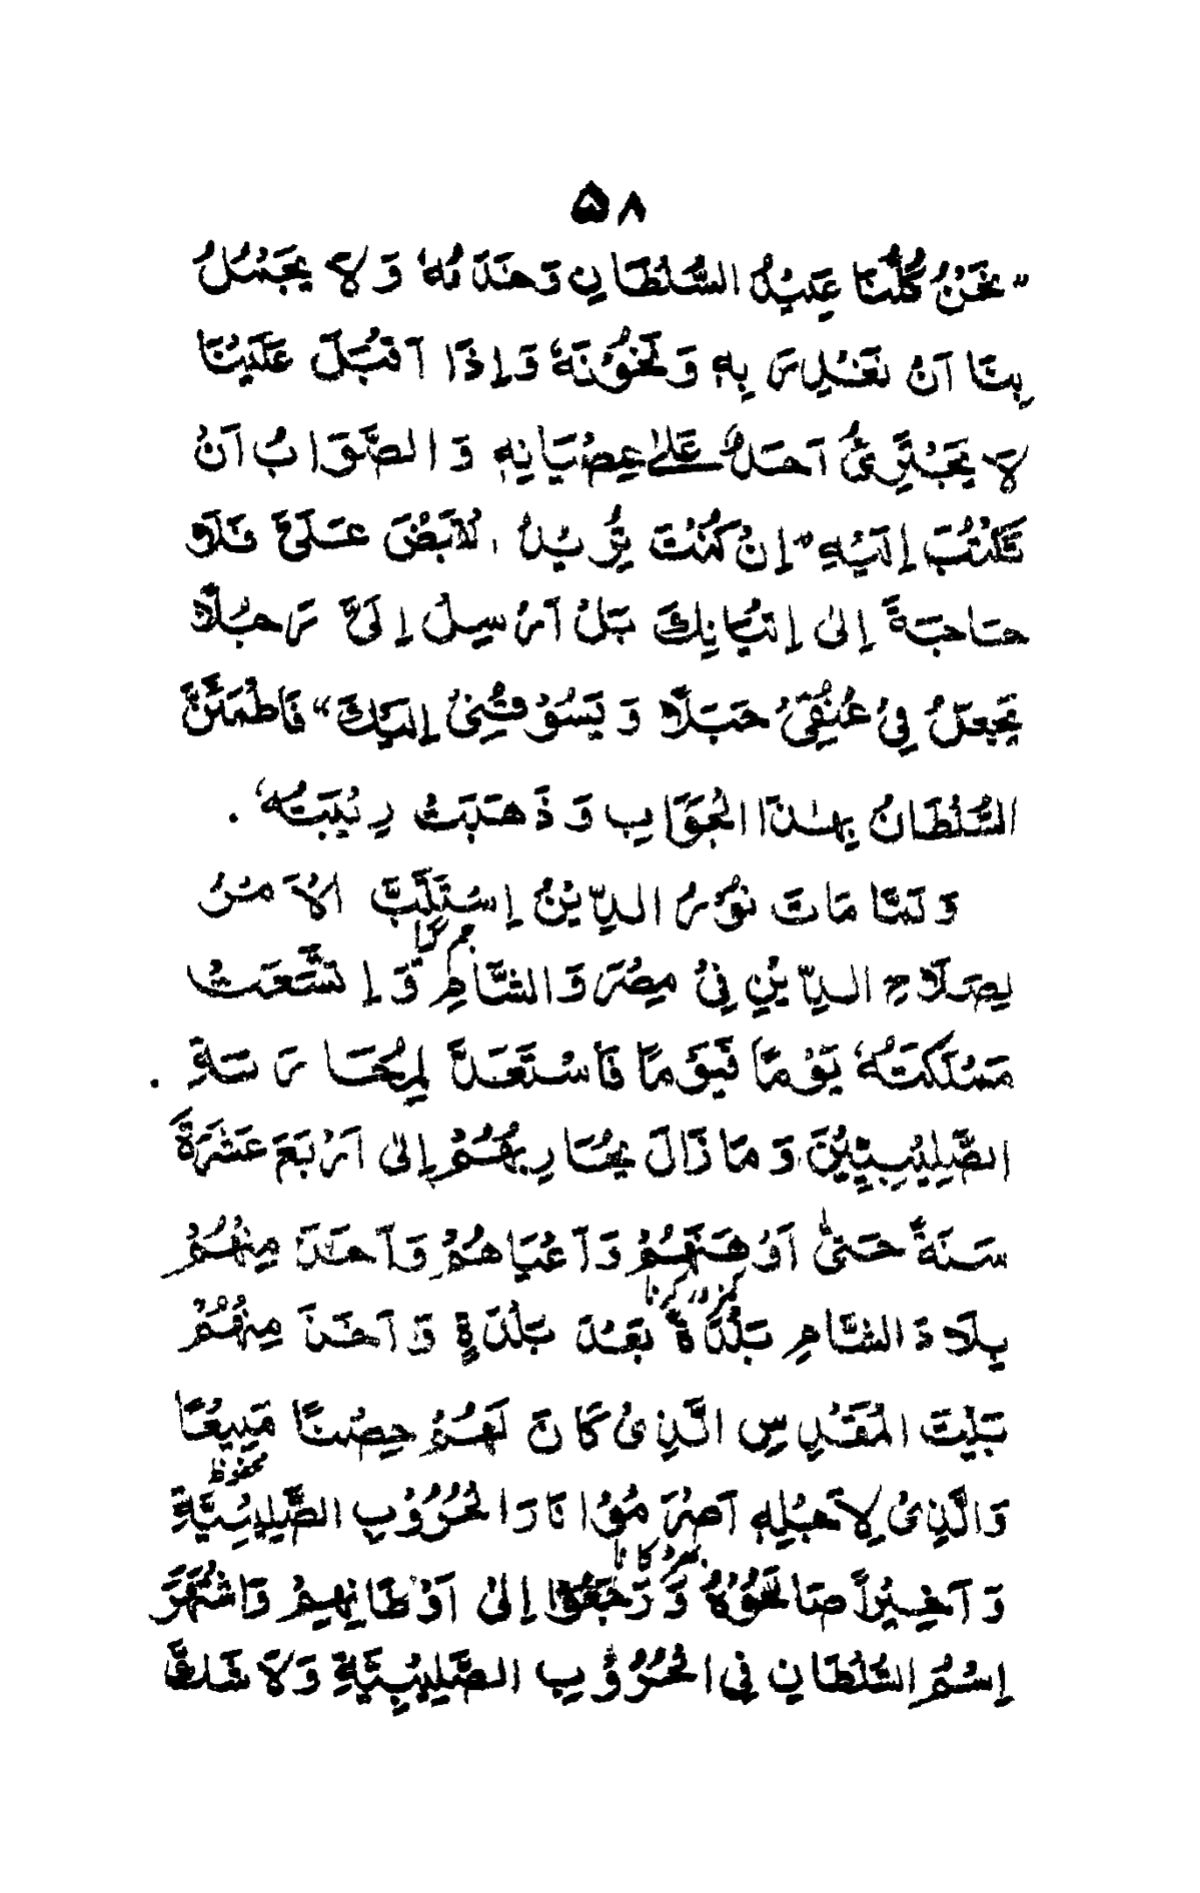 ۵۸
"نَحْنُ كُلُّنَا عَبِيْدُ السُّلْطَانِ وَخَدَمُهٗ وَلَا يَجْمُلُ
بِنَا اَنْ نَغْدِرَ بِهٖ وَنَخُوْنَهٗ وَاِذَا اَقْبَلَ عَلَيْنَا
لَا يَجْتَرِئُ اَحَدٌ عَلٰى عِصْيَانِهٖ وَالصَّوَابُ اَنْ
تَكْتُبَ اِلَيْهِ "اِنْ كُنْتَ تُرِيْدُ الْقَبْضَ عَلَيَّ فَلَا
حَاجَةَ اِلٰى اِتْيَانِكَ بَلْ اَرْسِلْ اِلَيَّ رَجُلًا
يَجْعَلُ فِيْ عُنُقِيْ حَبْلًا وَ يَسُوْقُنِيْ اِلَيْكَ" فَاطْمَئَنَّ
السُّلْطَانُ بِهٰذَا الْجَوَابِ وَذَهَبَتْ رِيْبَتُهٗ .
وَلَمَّا مَاتَ نُوْرُ الدِّيْنُ اِسْتَتَبَّ الْاَمْرُ
جم گیا
لِصَلَاحِ الدِّيْنِ فِيْ مِصْرَ وَالشَّامِ وَاِتَّسَعَتْ
مَمْلَكَتُهٗ يَوْمًا فَيَوْمًا فَاسْتَعَدَّ لِمُحَارَبَةِ .
الصَّلِيْبِيِّيْنَ وَمَا زَالَ يُحَارِبُهُمْ اِلٰى اَرْبَعَ عَشْرَةَ
سَنَةً حَتّٰى اَوْهَنَهُمْ وَاَعْيَاهُمْ وَاَخَذَ مِنْهُمْ
کمزور کرنا
بِلَادَ الشَّامِ بَلْدَةً بَعْدَ بَلْدَةٍ وَاَخَذَ مِنْهُمْ
بَيْتَ الْمَقْدِسِ الَّذِيْ كَانَ لَهُمْ حِصْنًا مَنِيْعًا
محفوظ
وَالَّذِيْ لِاَجْلِهٖ اَضْرَمُوْا نَارَ الْحُرُوْبِ الصَّلِيْبِيَّةِ
بھڑکانا
وَاَخِيْرًا صَالَحُوْهُ وَرَجَعُوْا اِلٰى اَوْطَانِهِمْ وَاشْتَهَرَ
اِسْمُ السُّلْطَانِ فِي الْحُرُوْبِ الصَّلِيْبِيَّةِ وَلَا شَكَّ